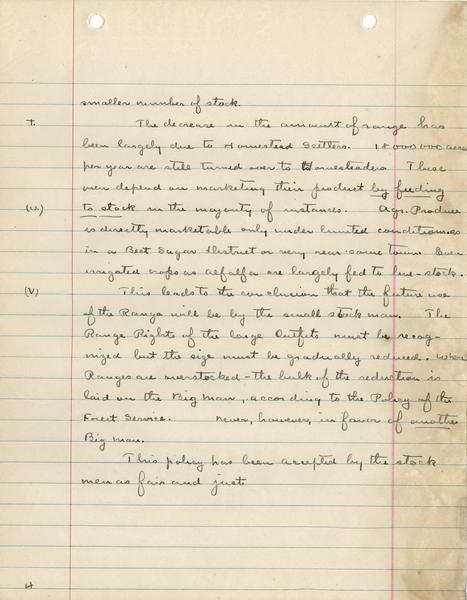 smaller number of stock.
T. The decrease in the amount of range has
been largely due to Homestead Settlers. 18000000 acres
per year are still turned over to Homesteaders. These
men depend on marketing their product by feeding
(U.) to stock in the majority of instances. Agr. Produce
is directly marketable only under limited conditions as
in a Beet Sugar District or very near some town. Even
irrigated crops as alfalfa are largely fed to live-stock.
(V) This leads to the conclusion that the future use
of the Range will be by the small stock man. The
Range Rights of the large Outfits must be recog-
nized but the size must be gradually reduced. Where
Ranges are overstocked - the bulk of the reduction is
laid on the Big Man, according to the Policy of the
Forest Service. Never, however, in favor of another
Big Man.
This policy has been accepted by the stock
men as fair and just